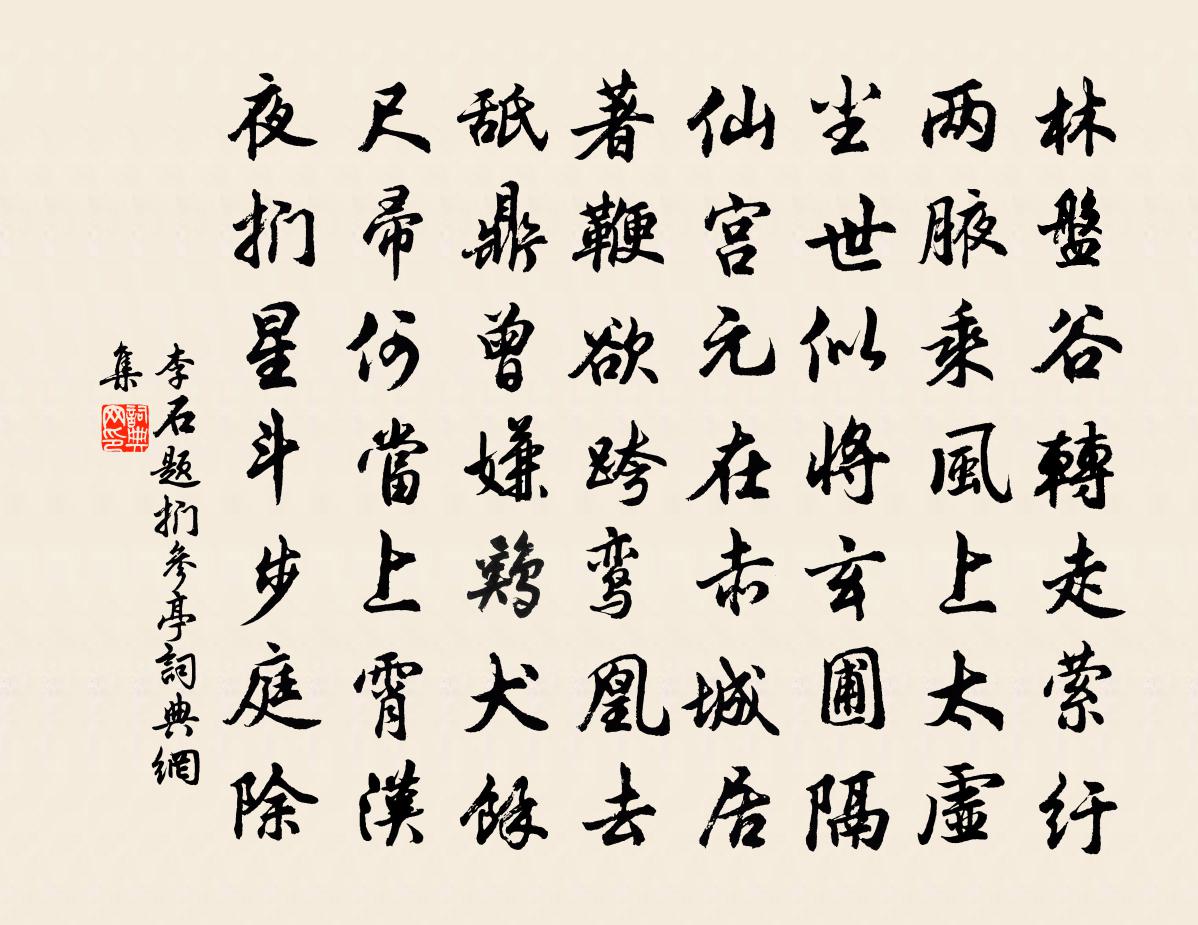 林盤谷轉走萦纡
两腋乘風上太虛
尘世似將玄圃隔
仙宫元在赤城居
著鞭欲跨鸾凰去
舐鼎曾嫌鷄犬餘
尺帚何當上霄漢
夜捫星斗步庭除
李石題捫參亭詞典網
集
詞典网印